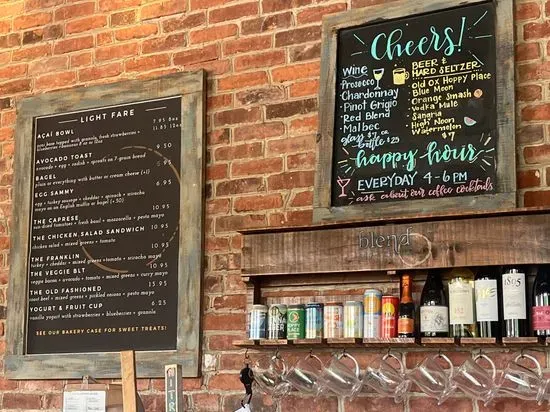 LIGHT FARE
AÇAÍ BOWL 7.95 8oz
11.95 12oz
acai base topped with granola, fresh strawberries +
blueberries + banana
AVOCADO TOAST 9.50
avocado + egg + radish + sprouts on 7-grain bread
BAGEL
plain or everything with butter or cream cheese (+1)
EGG SAMMY 6.95
egg + turkey sausage + cheddar + spinach + sriracha
mayo on an english muffin or bagel (+.50)
THE CAPRESE 10.95
sun-dried tomatoes + fresh basil + mozzarella + pesto mayo
THE CHICKEN SALAD SANDWICH 10.95
chicken salad + mixed greens + tomato
THE FRANKLIN 10.95
turkey + cheddar + mixed greens + tomato + sriracha mayo
THE VEGGIE BLT 10.95
veggie bacon + avocado + tomato + mixed greens + curry mayo
THE OLD FASHIONED 15.95
roast beef + mixed greens + pickled onions + pesto mayo
YOGURT & FRUIT CUP 6.25
vanilla yogurt with strawberries + blueberries + granola
SEE OUR BAKERY CASE FOR SWEET TREATS!
Cheers!
Wine
Prosecco
Chardonnay
Pinot Grigio
Red Blend
Malbec
glass $7 or
bottle $23
BEER &
HARD SELTZER
Old Ox Hoppy Place
Blue Moon
Orange Smash
Vodka Mule
Sangria
High Noon
Watermelon
$7
happy hour
EVERYDAY 4-6 PM
ask about our coffee cocktails
blend
HOPPY
PLACE
1865
NITR